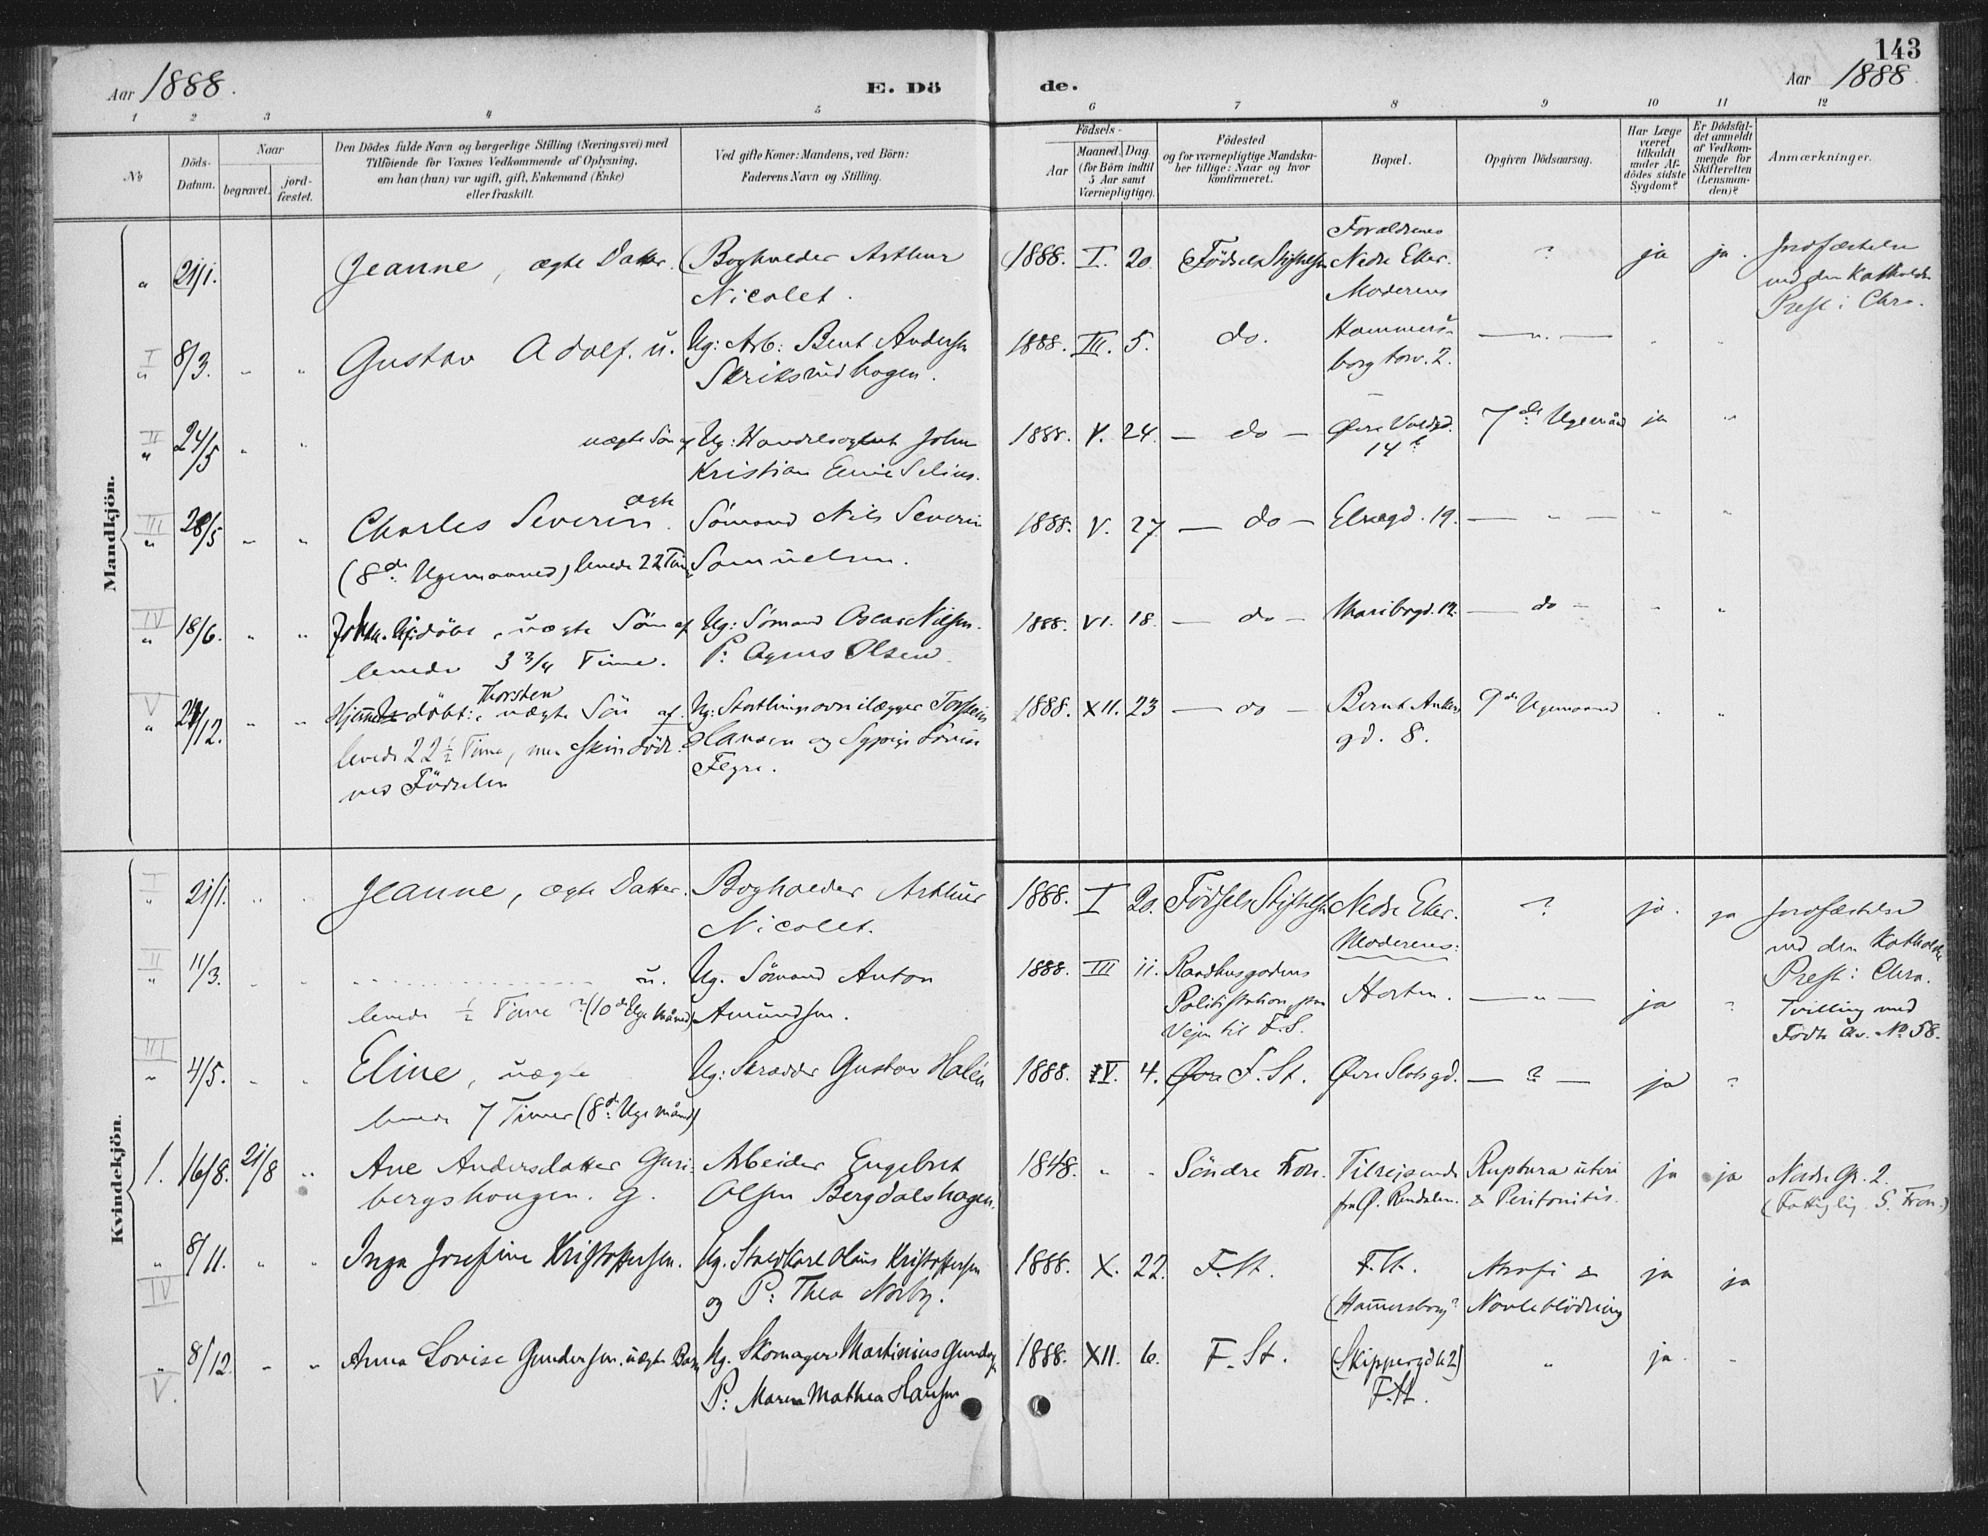 143
Aar 1888.
E. Dö
de.
Aar 1888
1 2 3 4 5 6 7 8 9 10 11 12
No
Döds-
Datum.
Naar
begravet.
jord-
fæstet.
Den Dödes fulde Navn og borgerlige Stilling (Næringsvei) med
Tilföiende for Voxnes Vedkommende af Oplysning,
om han (hun) var ugift, gift, Enkemand (Enke)
eller fraskilt.
Ved gifte Koner: Mandens, ved Börn:
Faderens Navn og Stilling.
Födsels-
Aar
Maaned. Dag
(for Börn indtil
5 Aar samt
Værnepligtige).
Födested
og for værnepligtige Mandska-
ber tillige: Naar og hvor
konfirmeret.
Bopæl.
Opgiven Dödsaarsag.
Har Læge
været
tilkaldt
under Af-
dödes sidste
Sygdom?
Er Dödsfal-
det anmeldt
af Vedkom-
mende for
Skifteretten
(Lensman-
den)?
Anmærkninger.
Mandkjön.
" 21/1. Jeanne, ægte Datter. Bogholder Arthur
Nicolet.
1888. I. 20. Födsels Stiftelsen Forældrenes
Nedre Eker. ? ja ja. Jordfæstelse
ved den Katholske
Prest i Chra.
I 8/3. " " Gustav Adolf. u. Ug: Arb: Bent Andersen
1888. III. 5. do. Moderens
Hammers-
borg torv. 2. — " —
II 24/5 " " uægte Sön af Ug: Handelsagent John
Kristian
1888. V. 24. — do — Øvre Voldgd.
14 7de Ugemånd ja "
III 28/5 " " Charles Severin. ægte Sömand Nils Severin
(8de Ugemaaned) levede 22 Tim Samuelsen.
1888. V. 27 — do — Elvegd. 19. — " — " "
IV 18/6. " " döbt, uægte Sön af Ug: Sömand Oscar Nilsen.
levede 3 3/4 Time. P: Agnes Olsen
1888. VI. 18. — do — Maribogd. 12. — do — " "
V 24/12. " " Hjemmedöbt: Thorsten uægte Sön af Ug: Torstein
levede 22 1/2 Time, men skindöd Hansen og Sypige Lovise
ved Födselen Fegre.
1888. XII. 23 — do — Bernt Ankers
gd. 8. 9de Ugemaaned " "
Kvindekjön.
I 21/1. " " Jeanne, ægte Datter. Bogholder Arthur
Nicolet.
1888. I 20. Födsels Stiftelsen Nedre Eker. ? ja. ja Jordfæstelse
ved den Katholske
Prest i Chra.
II 11/3. " " u. Ug. Sömand Anton
levede 1/2 Time (10de Uge Månd) Amundsen.
1888. III 11. Raadhusgadens
Politistation, paa
Vejen til F. S. Moderens:
Horten. — " — ja " Tvilling med
Födte Av. No 58.
III 4/5. " " Eline, uægte Ug: Skrædder Gustav Halén
levede 7 Timer (8de Uge Månd)
1888. V. 4. F. St. Øvre Slotsgd. — ? — ja "
1. 16/8. 21/8 " Ane Andersdatter Guri-
bergshougen. G. Arbeider Engebret
Olsen Bergdalshagen.
1848. " " Söndre Fron. Tilrejsende
fra Ø. Rendalen. Ruptura uteri
& Peritonitis. ja ja Nedre Gr. 2.
(Fattiglig. S. Fron.)
IV 8/11. " " Inga Josefine Kristoffersen. Ug. Staldkarl Olaus Kristoffersen
og P: Thea Norby.
1888. X. 22. F. St. F. St.
(Hammersborg? Atrofi &
Navleblödning ja ja
V. 8/12. " " Anna Lovise Gundersen. uægte Barn Ug. Skomager Martinius Gunders
P: Maren Mathea Hansen
1888. XII. 6. F. St. (Skippergd 42)
F. St. " ja. "